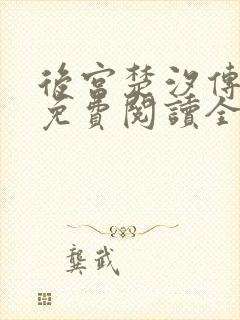 後宮楚汐傳
免費閱讀全
龔武